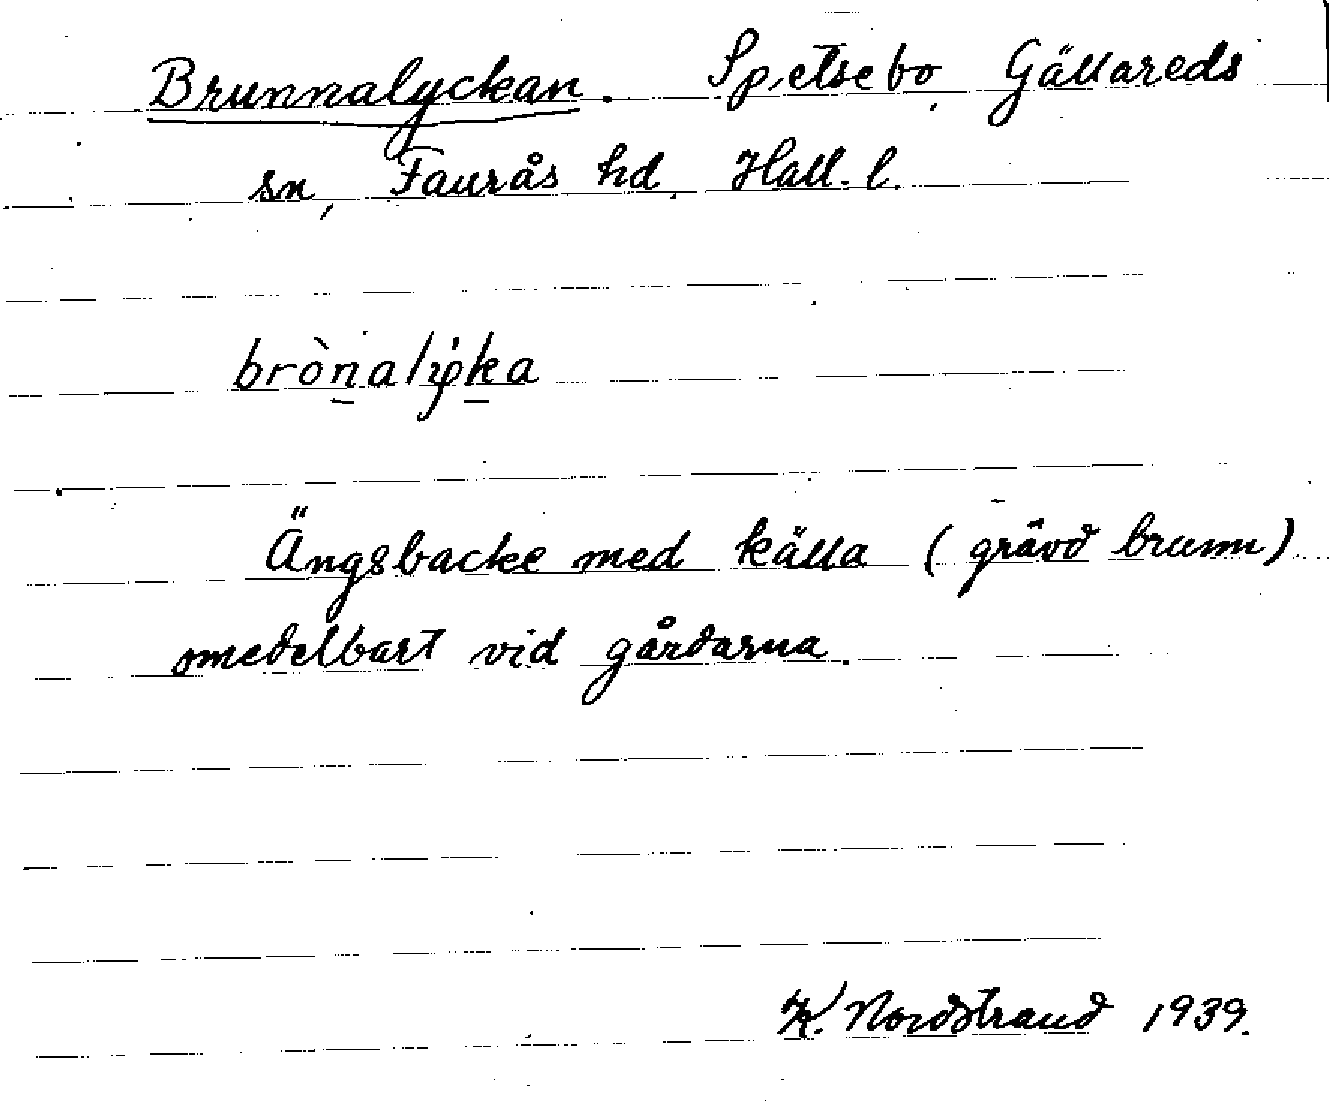 Brunnalyckan. Spetsebo, Gällareds
sn, Faurås hd, Hall. l.
brònalýka
Ängsbacke med källa (grävd brunn)
medelbart vid gårdarna.
K. Nordstrand 1939.